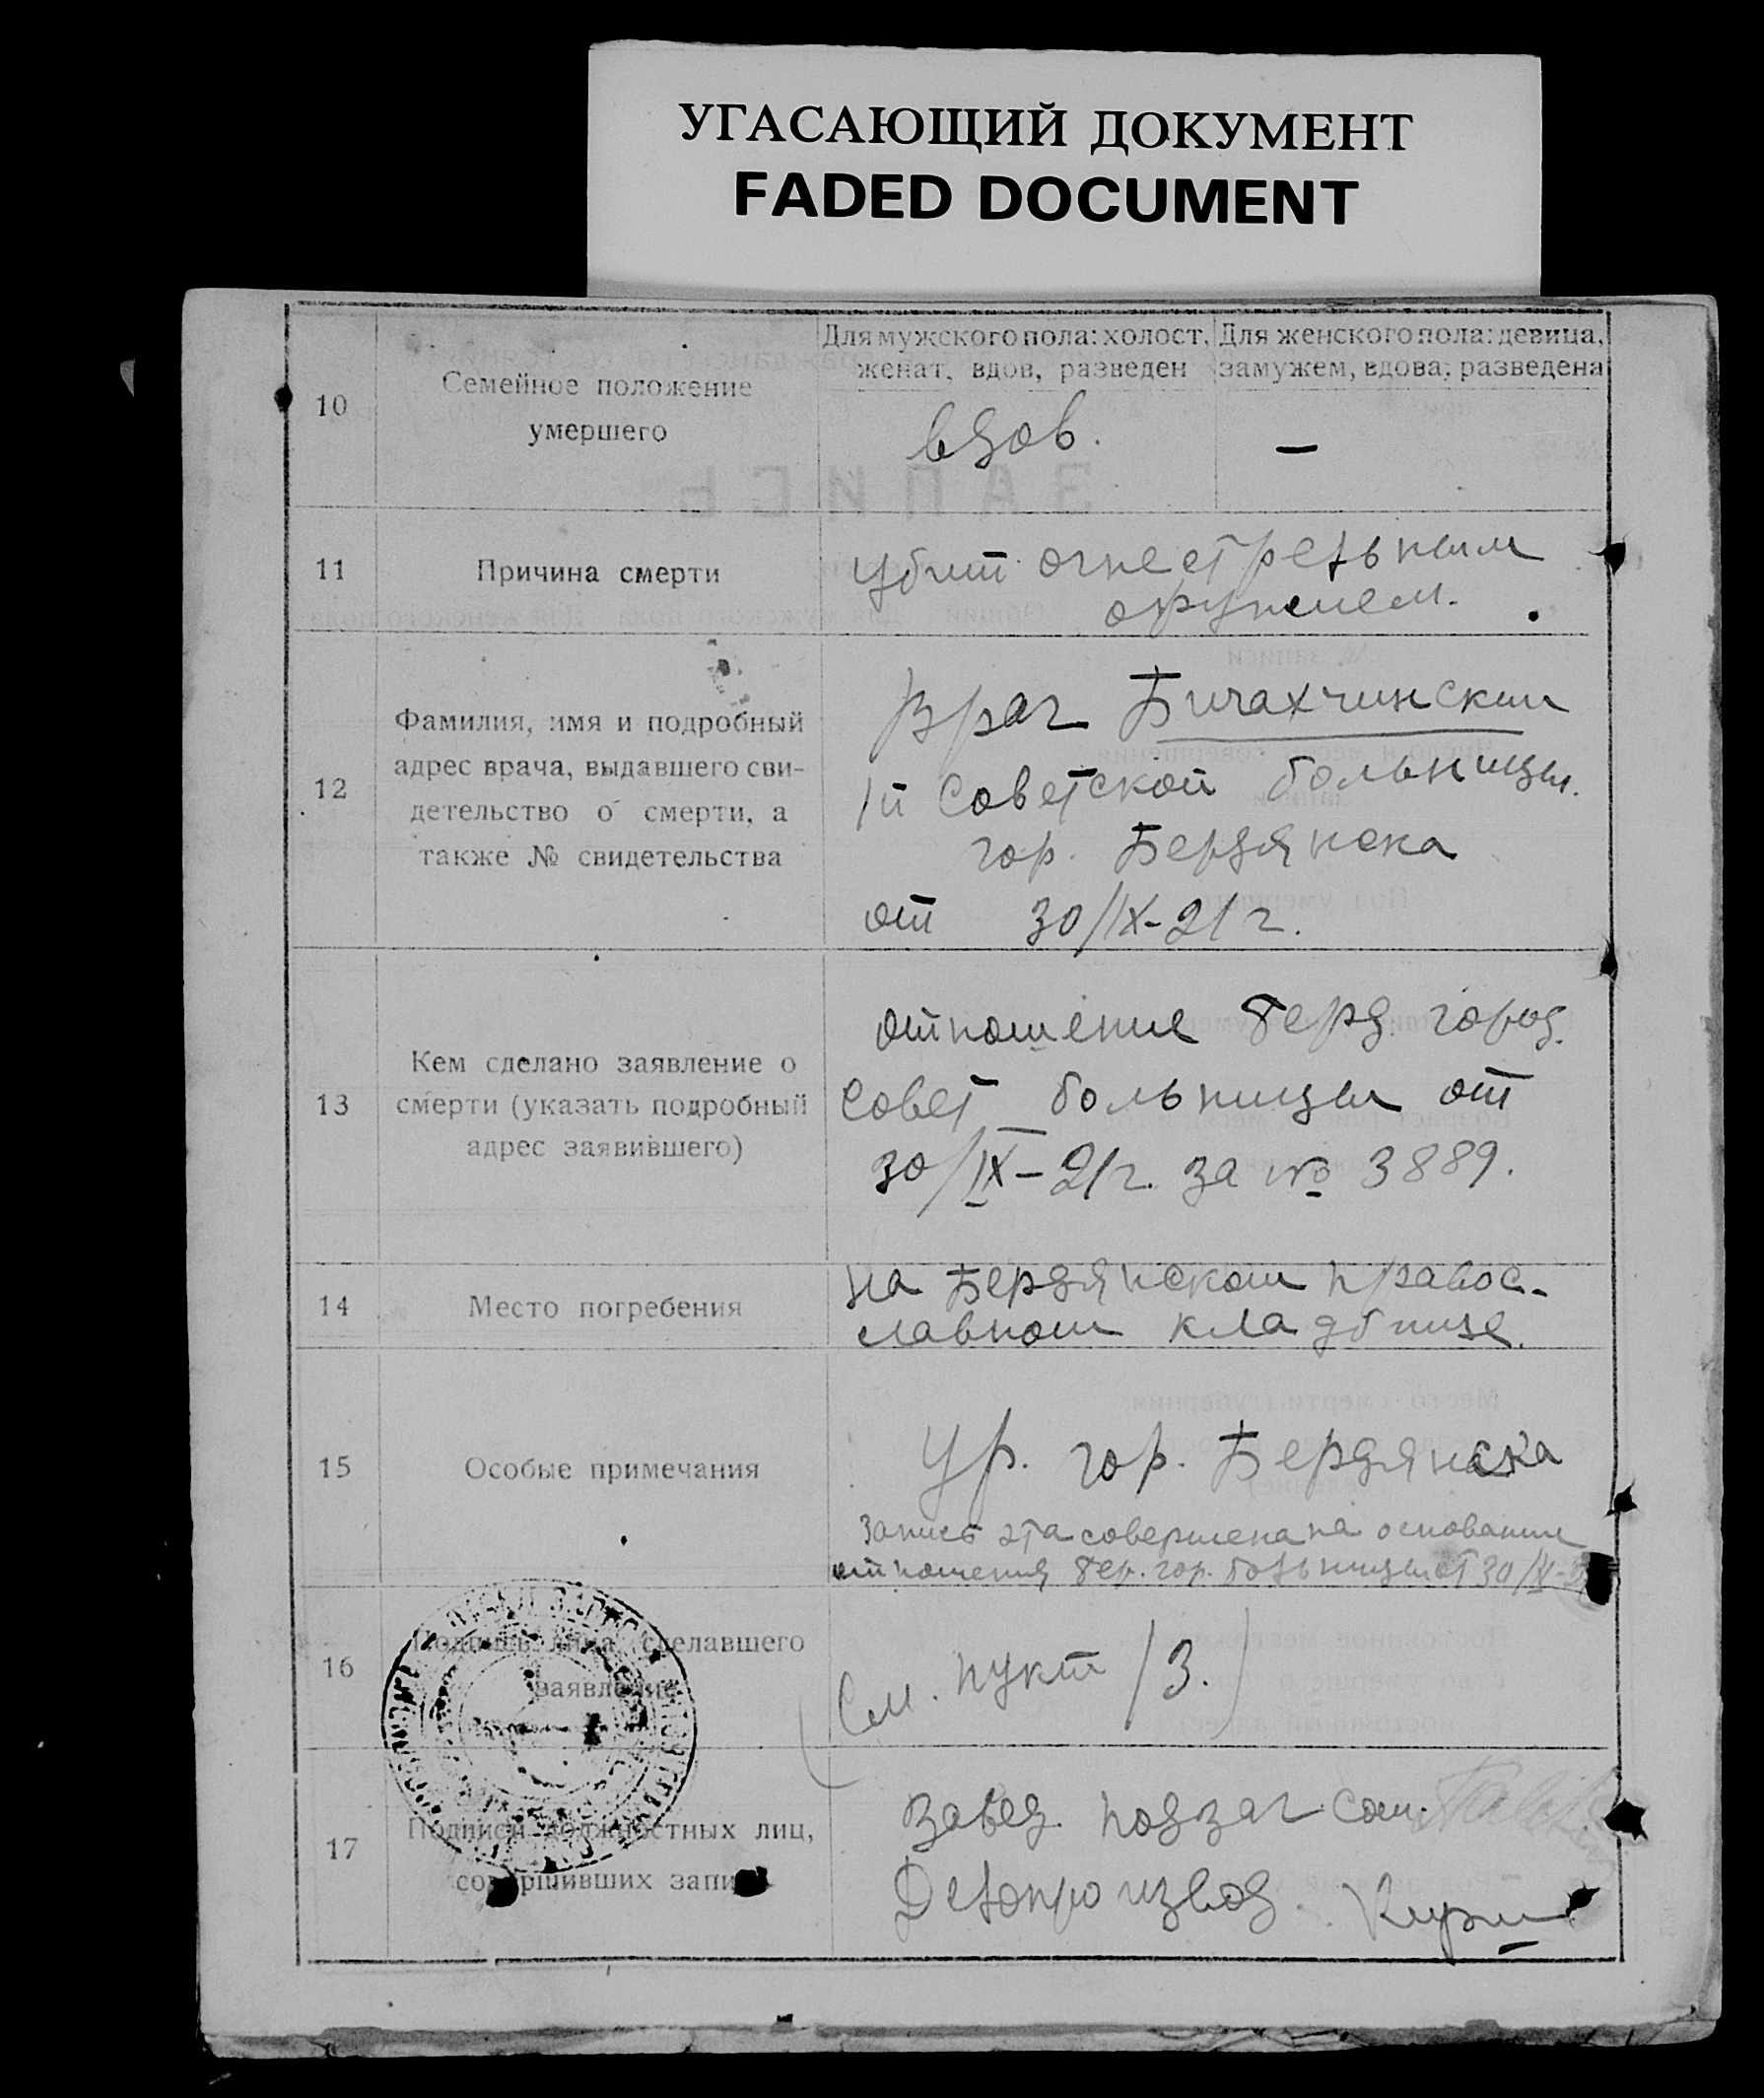 УГАСАЮЩИЙ ДОКУМЕНТ
FADED DOCUMENT
10
Семейное положение
умершего
Для мужского пола: холост,
женат, вдов, разведен
Для женского пола: девица,
замужем, вдова, разведена
вдов.
—
ЗАПИСЬ
11
Причина смерти
Убит огнестрельным
оружием.
12
Фамилия, имя и подробный
адрес врача, выдавшего сви-
детельство о смерти, а
также № свидетельства
Врач Бичахчинский
1й Советской больницы.
гор. Бердянска
от 30/IX-21 г.
13
Кем сделано заявление о
смерти (указать подробный
адрес заявившего)
отношение Берд. город.
Совет больницы от
30/IX-21 г. за № 3889.
14
Место погребения
на Бердянском правос-
лавном кладбище.
15
Особые примечания
Ур. гор. Бердянска
Запись эта совершена на основании
отношения Бер. гор. больницы от 30/IX-2
16
Подпись лица, сделавшего
заявление
(См. пукт 13.)
17
Подписи должностных лиц,
совершивших запись
Завед. подзаг сам.
Делопроизвод.